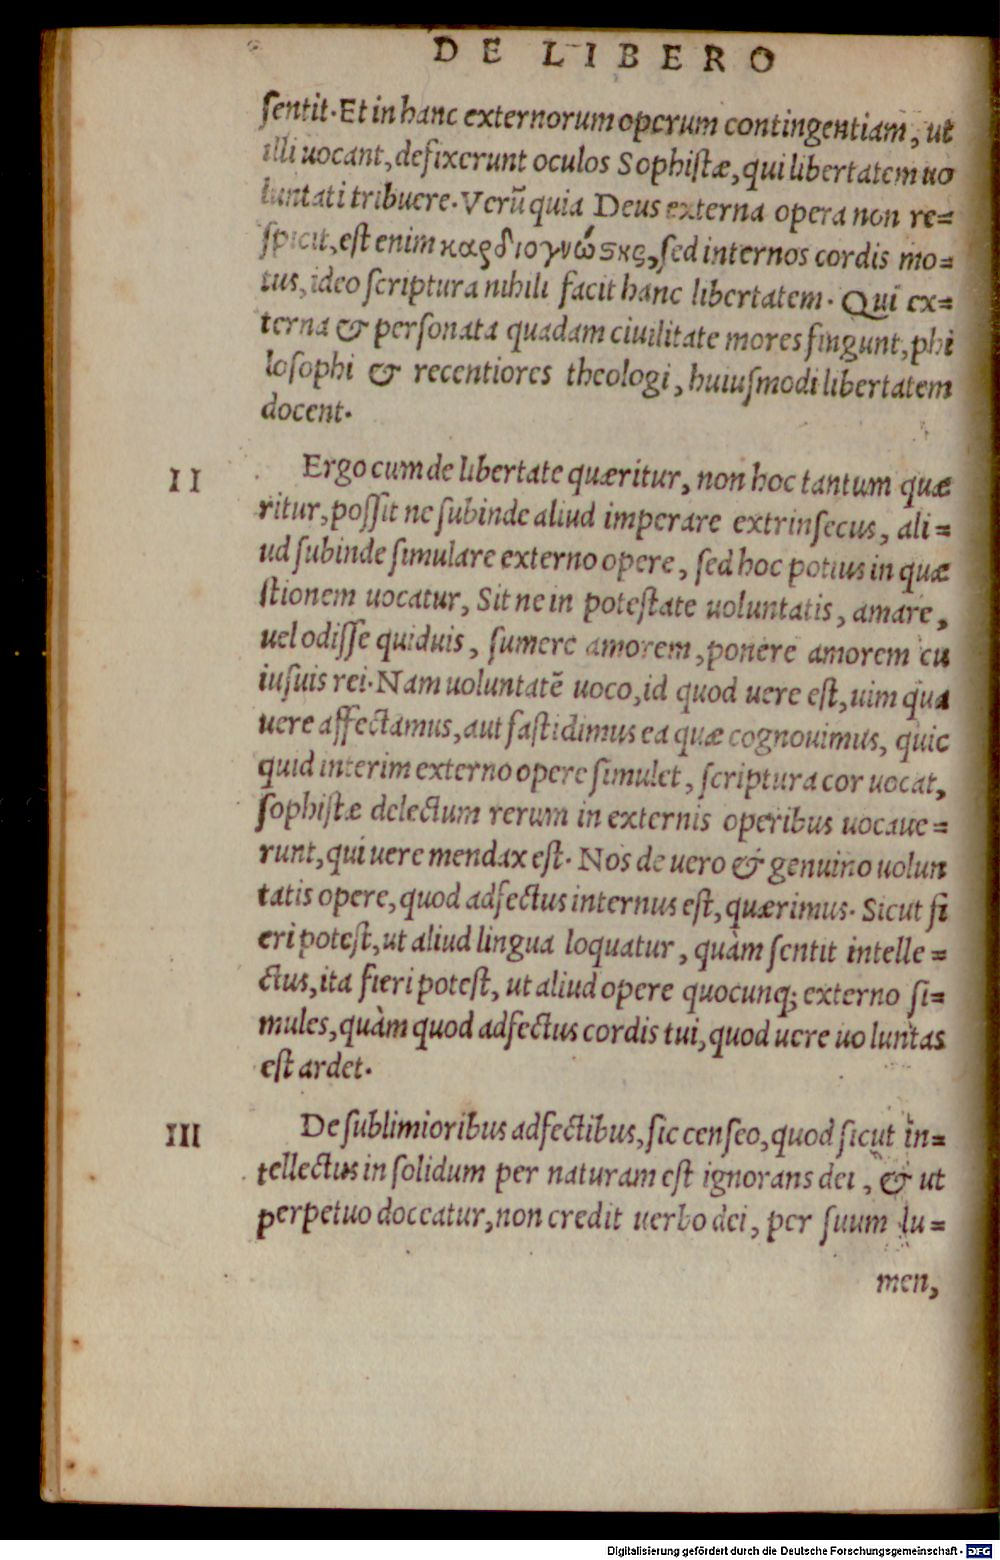 DE LIBERO
sentit. Et in hanc externorum operum contingentiam, ut
illi uocant, defixerunt oculos Sophistæ, qui libertatem uo
luntati tribuere. Verũ quia Deus externa opera non re=
spicit, est enim καρδιογνώςης, sed internos cordis mo=
tus, ideo scriptura nihili facit hanc libertatem. Qui ex=
terna & personata quadam ciuilitate mores fingunt, phi
losophi & recentiores theologi, huiusmodi libertatem
docent.
II Ergo cum de libertate quæritur, non hoc tantum quæ
ritur, possit ne subinde aliud imperare extrinsecus, ali=
ud subinde simulare externo opere, sed hoc potius in quæ
stionem uocatur, Sit ne in potestate uoluntatis, amare,
uel odisse quiduis, sumere amorem, ponere amorem cu
iusuis rei. Nam uoluntatẽ uoco, id quod uere est, uim qua
uere affectamus, aut fastidimus ea quæ cognouimus, quic
quid interim externo opere simulet, scriptura cor uocat,
sophistæ delectum rerum in externis operibus uocaue=
runt, qui uere mendax est. Nos de uero & genuino uolun
tatis opere, quod adfectus internus est, quærimus. Sicut fi
eri potest, ut aliud lingua loquatur, quàm sentit intelle=
ctus, ita fieri potest, ut aliud opere quocunq; externo si=
mules, quàm quod adfectus cordis tui, quod uere uoluntas
est ardet.
III De sublimioribus adfectibus, sic censeo, quod sicut in=
tellectus in solidum per naturam est ignorans dei, & ut
perpetuo doceatur, non credit uerbo dei, per suum lu=
men,
Digitalisierung gefördert durch die Deutsche Forschungsgemeinschaft - DFG